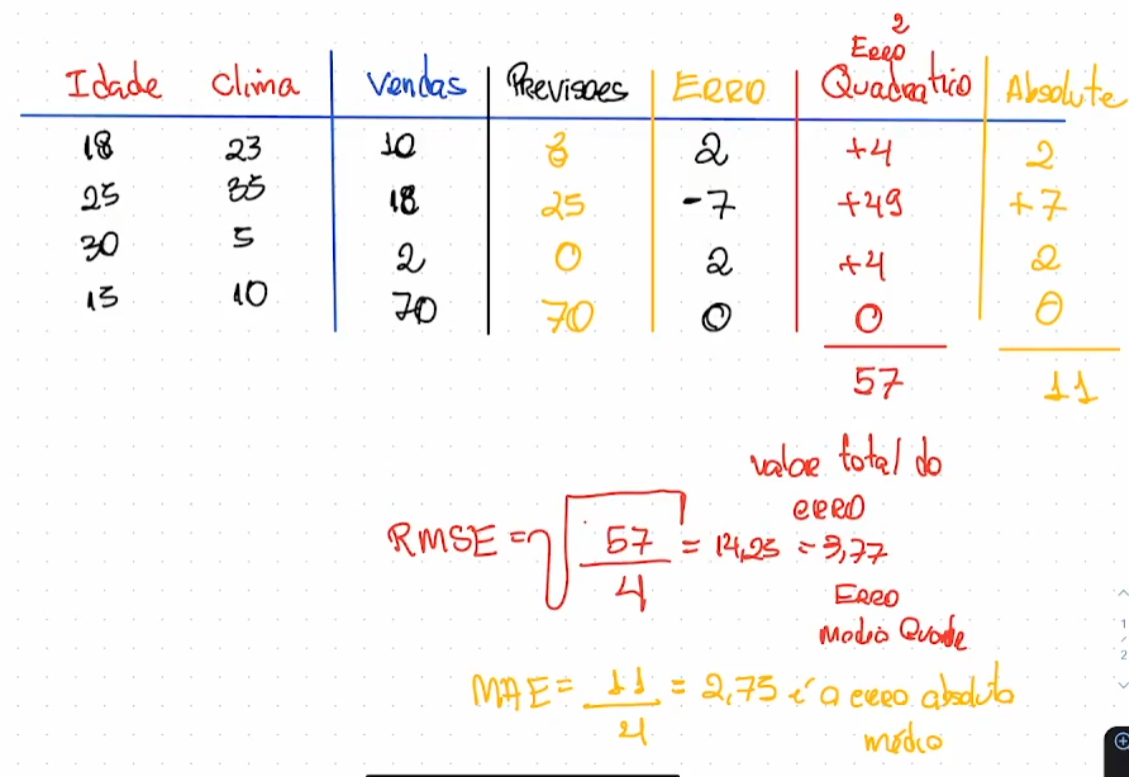 2
Erro
Idade Clima Vendas Previsoes ERRO Quadratrio Absolute
18 23 10 8 2 +4 2
25 35 18 25 -7 +49 +7
30 5 2 0 2 +4 2
15 10 70 70 0 0 0
57 11
valor total do
erro
RMSE = √ 57 / 4 = 14,25 = 3,77
Erro
Medio Quade
MAE = 11 / 4 = 2,75 é o erro absoluto
médio
1
/
2